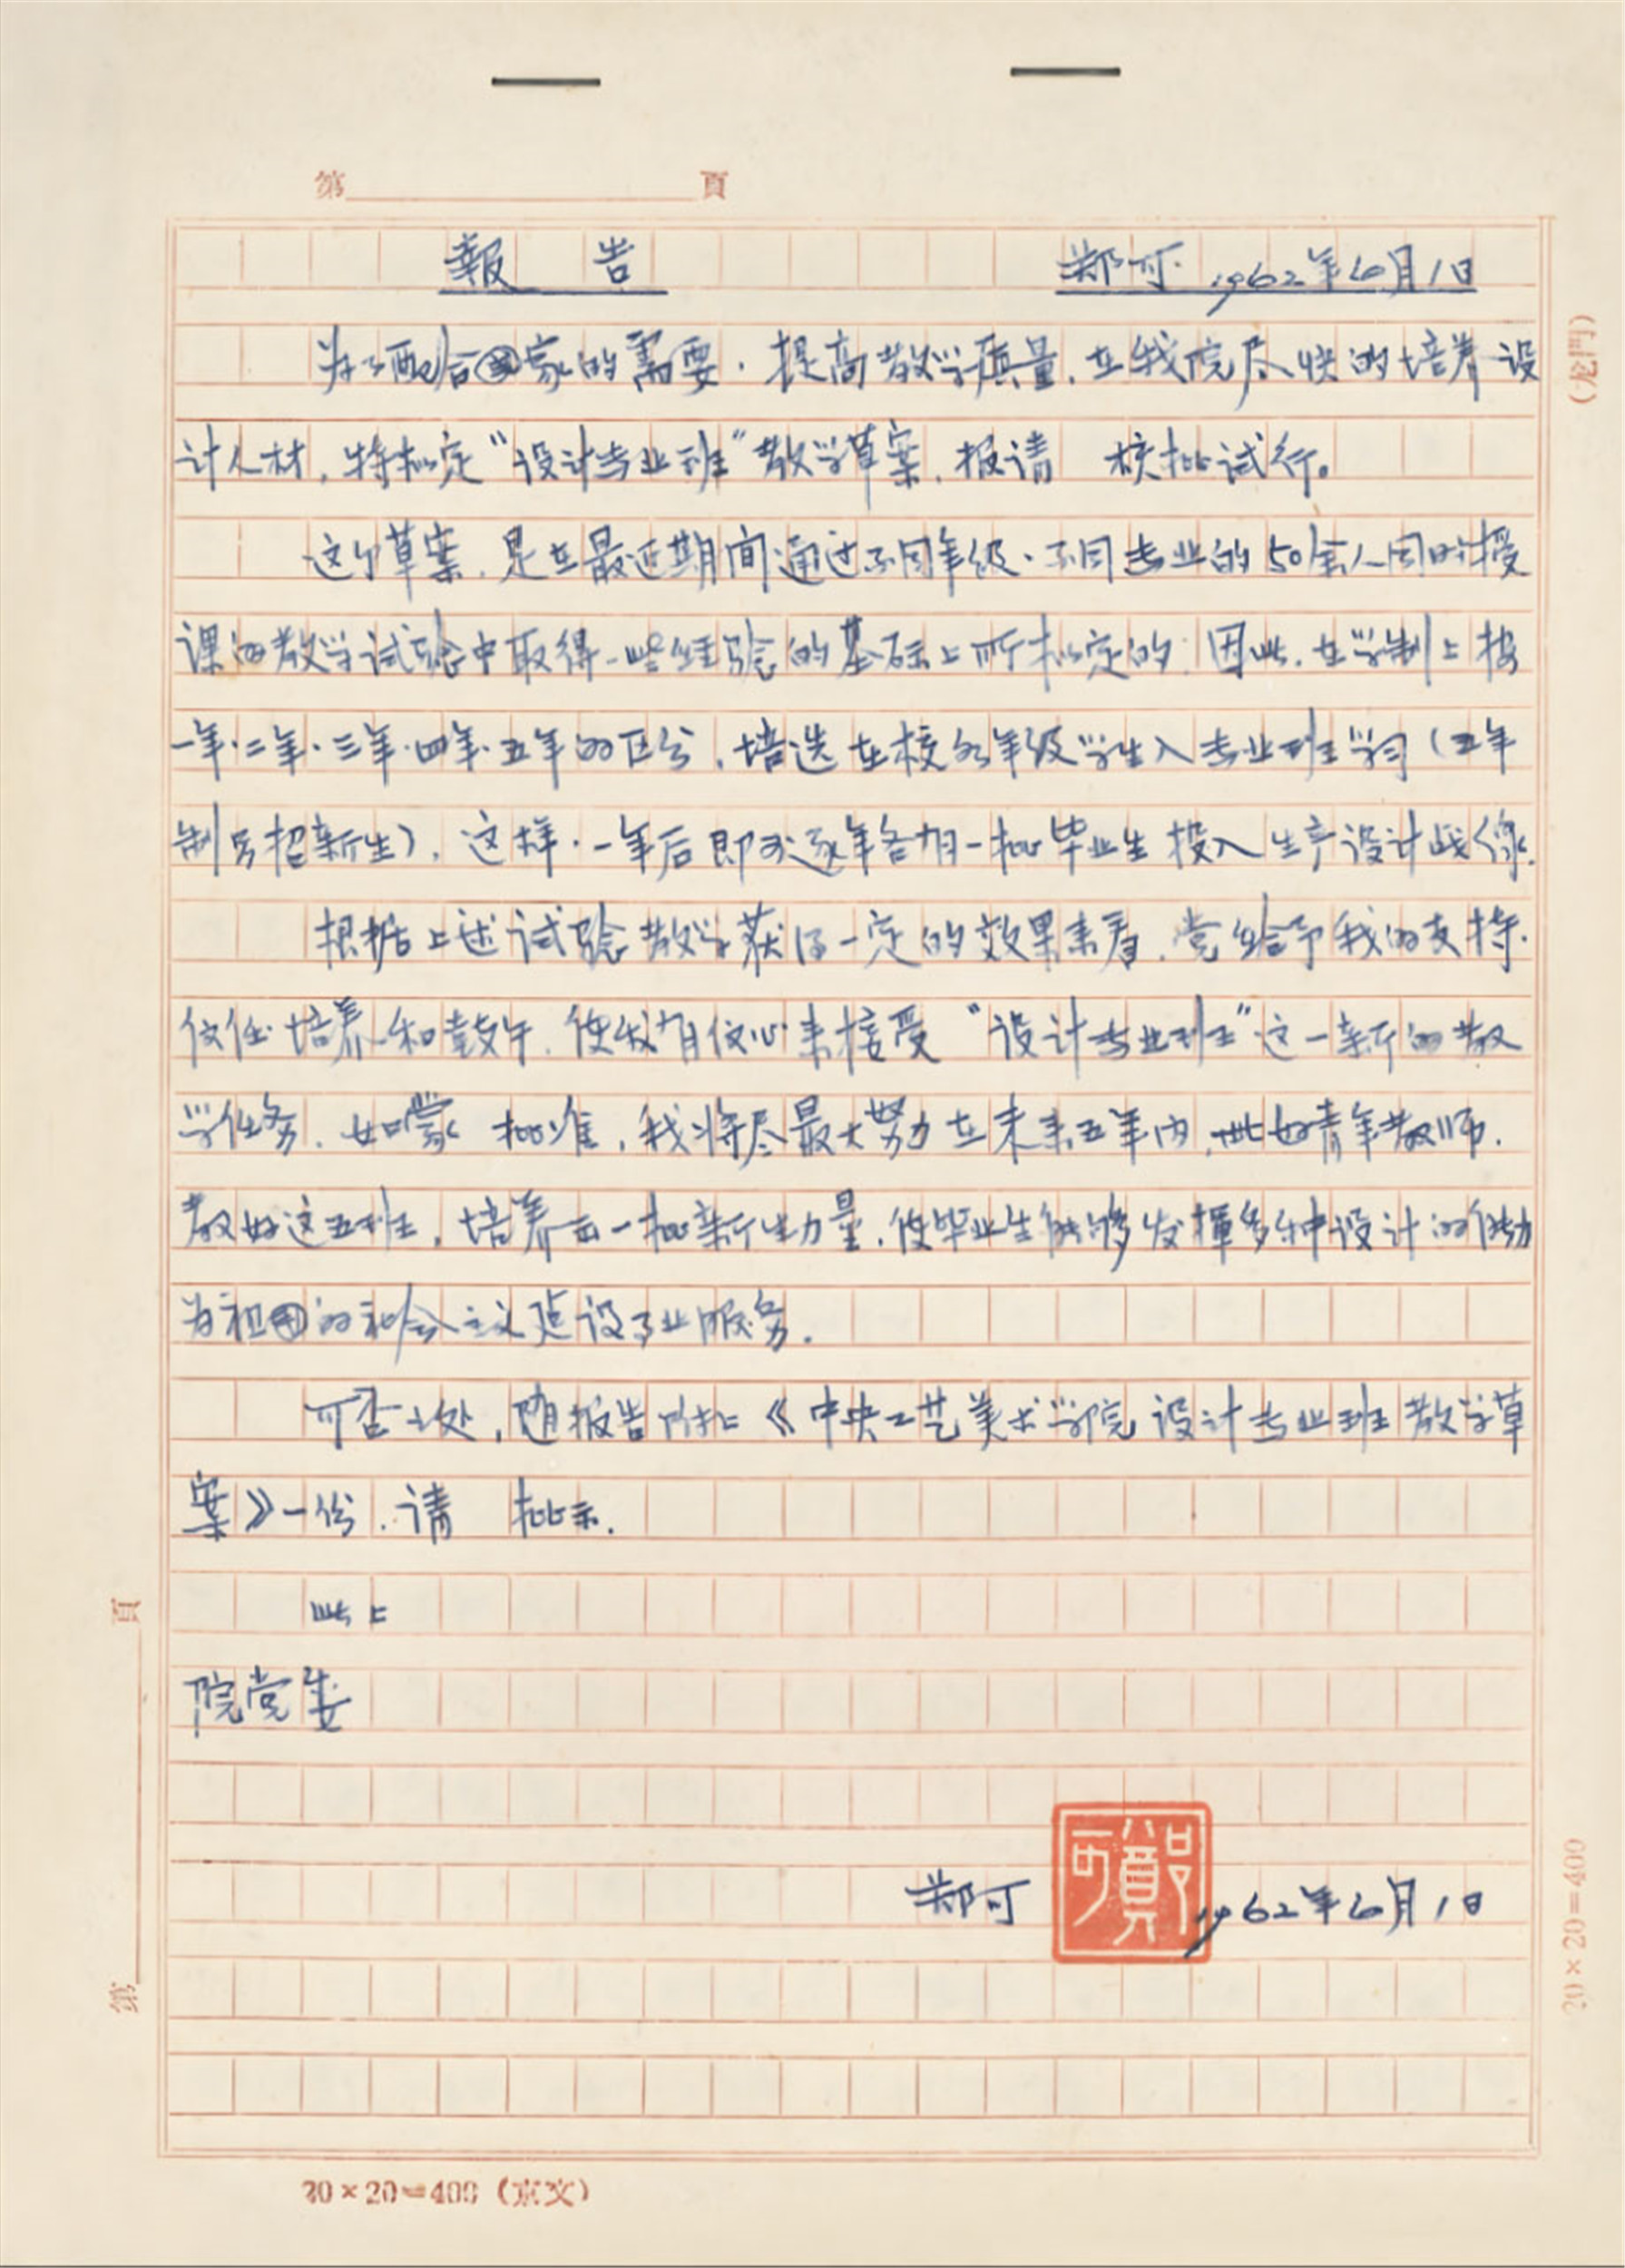 第 頁
報 告 郑可 1962年6月1日
为了配合国家的需要，提高教学质量，在我院尽快的培养设
计人材，特拟定“设计专业班”教学草案，报请 核批试行。
这个草案，是在最近期间通过不同年级、不同专业的50余人同时授
课的教学试验中取得一些经验的基础上所拟定的，因此，在学制上按
一年·二年·三年·四年·五年的区分，培选在校各年级学生入专业班学习（五年
制另招新生），这样，一年后即可逐年各有一批毕业生投入生产设计战线。
根据上述试验教学获得一定的效果来看，党给予我的支持、
信任、培养和鼓午，使我有信心来接受“设计专业班”这一新的教
学任务，如蒙 批准，我将尽最大努力在未来五年内，
好青年教师，
教好这五班，培养出一批新生力量，使毕业生能够发揮多种设计的能力
为祖国的社会主义建设事业服务。
可否之处，随报告附上《中央工艺美术学院设计专业班教学草
案》一份，请 批示。
此上
院党委
郑可 鄭可 1962年6月1日
20×20=400（京文）
第 頁
（龙門）
20×20=400